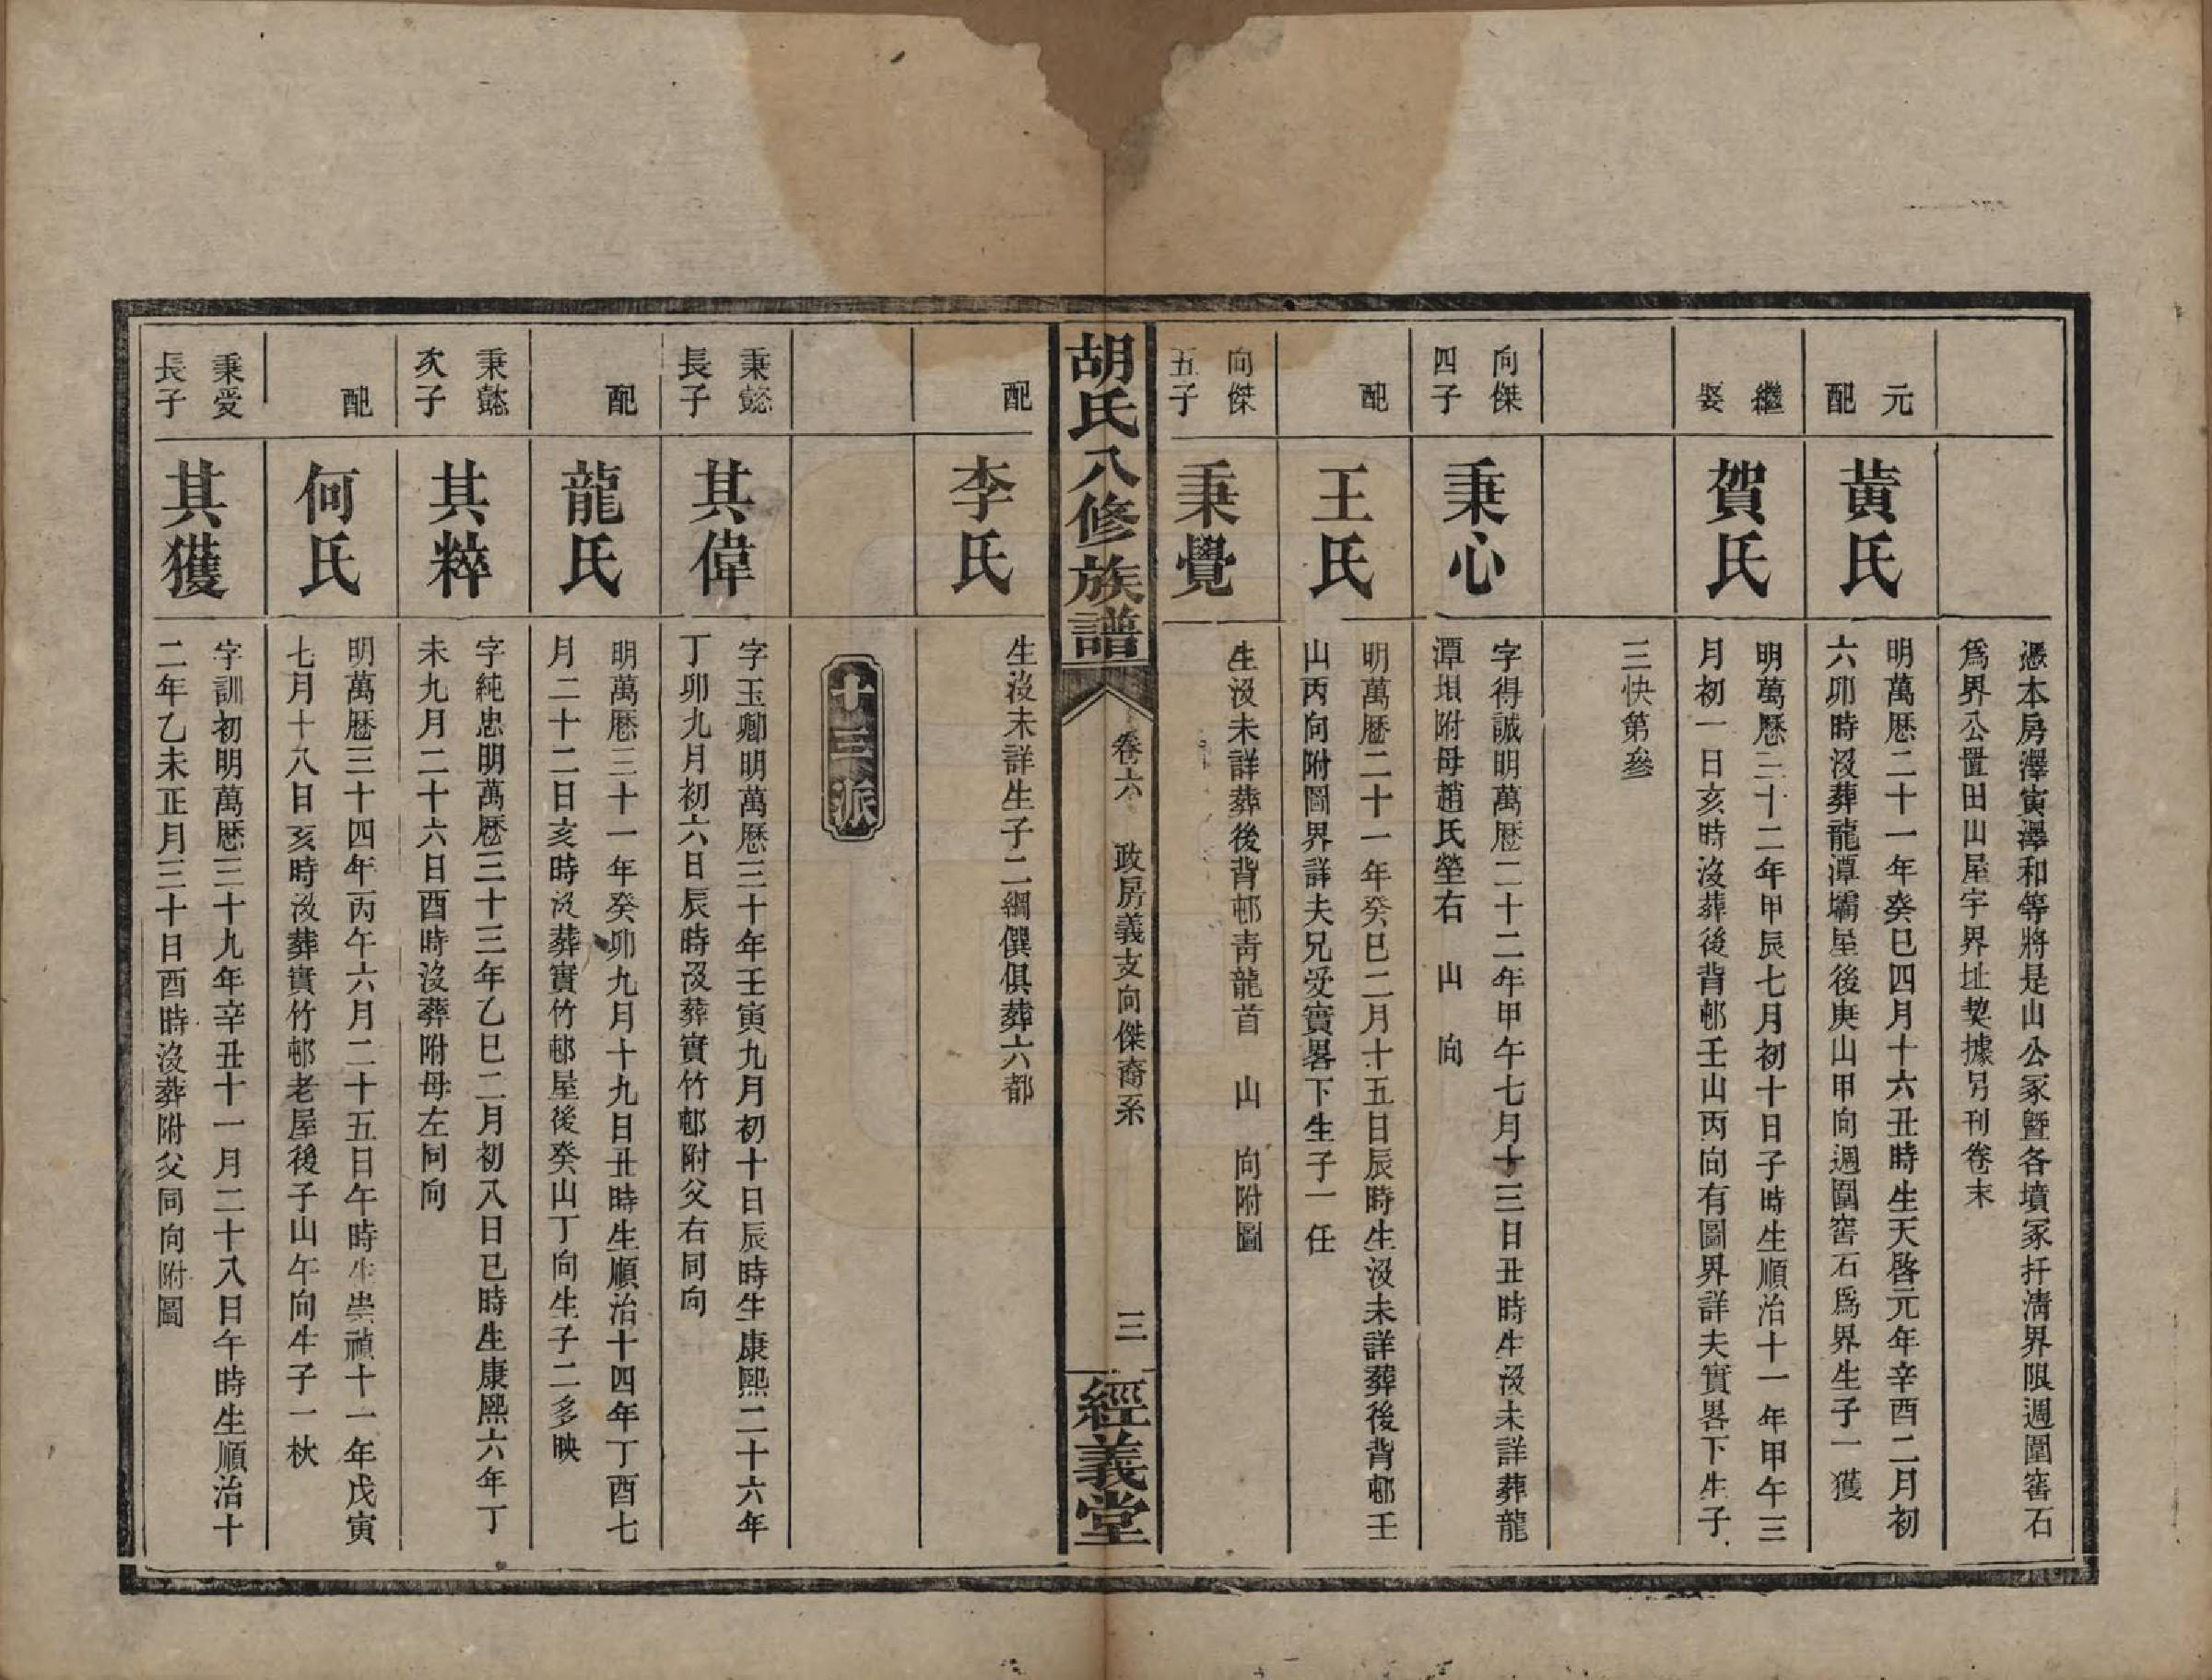 憑本房澤寅澤和等將是山公冢暨各墳冢扦清界限週圍窖石
爲界公置田山屋宇界址契據另刊卷末
元
配
黃氏
明萬曆二十一年癸巳四月十六丑時生天啓元年辛酉二月初
六卯時沒葬龍潭壩屋後庚山甲向週圍窖石爲界生子一獲
繼
娶
賀氏
明萬曆三十二年甲辰七月初十日子時生順治十一年甲午三
月初一日亥時沒葬後背邨壬山丙向有圖界詳夫實畧下生子
三快第參
向傑
四子
秉心
字得誠明萬曆二十二年甲午七月十三日丑時生沒未詳葬龍
潭垻附母趙氏塋右 山 向
配
王氏
明萬曆二十一年癸巳二月十五日辰時生沒未詳葬後背邨壬
山丙向附圖界詳夫兄受實畧下生子一任
向傑
五子
秉覺
生沒未詳葬後背邨靑龍首 山 向附圖
胡氏八修族譜
卷六 政房義支向傑裔系
三
經義堂
配
李氏
生沒未詳生子二綱僎俱葬六都
十三派
秉懿
長子
其偉
字玉卿明萬曆三十年壬寅九月初十日辰時生康熙二十六年
丁卯九月初六日辰時沒葬實竹邨附父右同向
配
龍氏
明萬曆三十一年癸卯九月十九日丑時生順治十四年丁酉七
月二十二日亥時沒葬實竹邨屋後癸山丁向生子二多映
秉懿
次子
其粹
字純忠明萬曆三十三年乙巳二月初八日巳時生康熙六年丁
未九月二十六日酉時沒葬附母左同向
配
何氏
明萬曆三十四年丙午六月二十五日午時生崇禎十一年戊寅
七月十八日亥時沒葬實竹邨老屋後子山午向生子一秋
秉受
長子
其獲
字訓初明萬曆三十九年辛丑十一月二十八日午時生順治十
二年乙未正月三十日酉時沒葬附父同向附圖